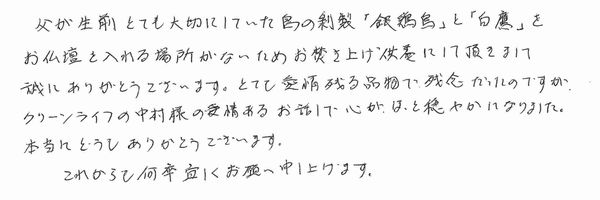 父が生前とても大切にしていた鳥の剥製「銀鶏鳥」と「白鷹」を
お仏壇を入れる場所がないためお焚き上げ供養にして頂きまして
誠にありがとうございます。とても愛情残る品物で残念だったのですが、
クリーンライフの中村様の愛情あるお話しで心がほっと穏やかになりました。
本当にどうもありがとうございます。
これからも何卒宜しくお願い申し上げます。